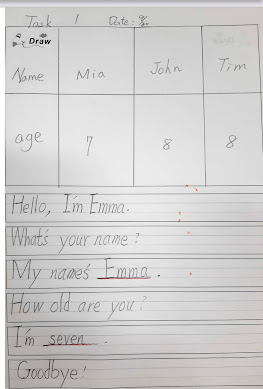 Task 1 Date:
Draw
Name Mia John Tim
age 7 8 8
Hello, I'm Emma.
What's your name?
My name's Emma.
How old are you?
I'm seven.
Goodbye!